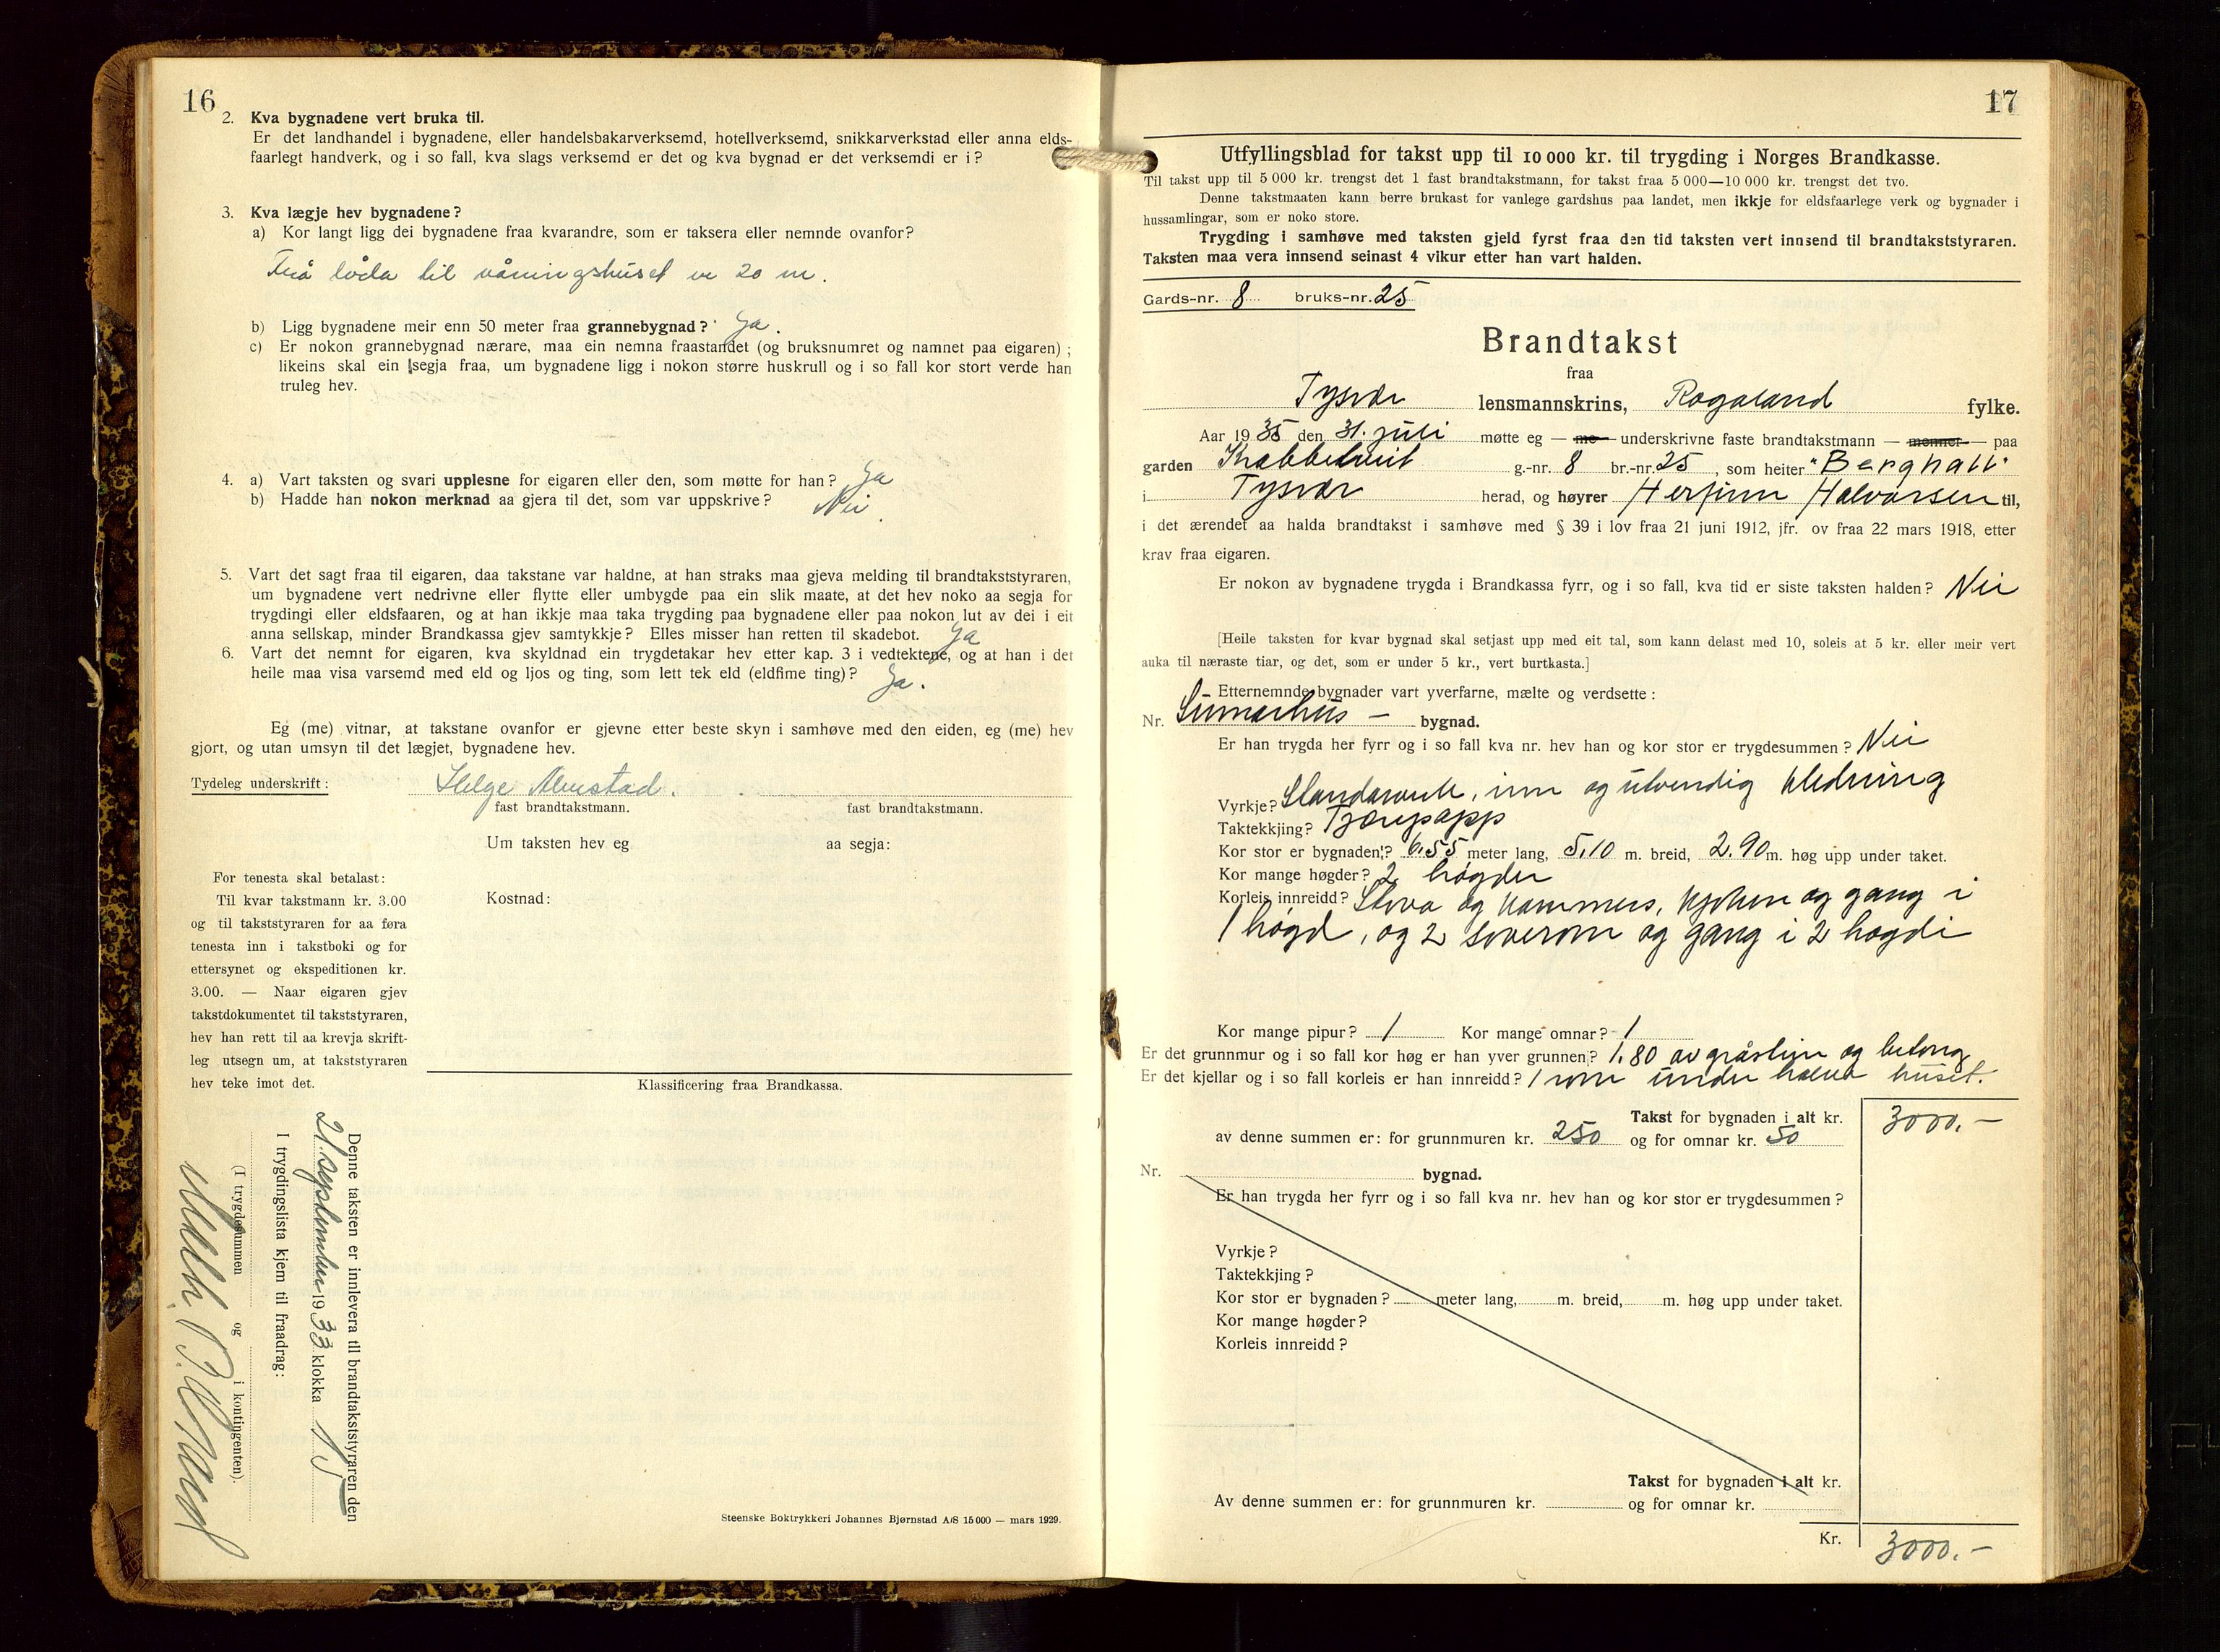 16
2. Kva bygnadene vert bruka til.
Er det landhandel i bygnadene, eller handelsbakarverksemd, hotellverksemd, snikkarverkstad eller anna elds-
faarlegt handverk, og i so fall, kva slags verksemd er det og kva bygnad er det verksemdi er i?
3. Kva lægje hev bygnadene?
a) Kor langt ligg dei bygnadene fraa kvarandre, som er taksera eller nemnde ovanfor?
Frå löda til våningshuset er 20 m.
b) Ligg bygnadene meir enn 50 meter fraa grannebygnad? Ja.
c) Er nokon grannebygnad nærare, maa ein nemna fraastandet (og bruksnumret og namnet paa eigaren);
likeins skal ein segja fraa, um bygnadene ligg i nokon større huskrull og i so fall kor stort verde han
truleg hev.
4. a) Vart taksten og svari upplesne for eigaren eller den, som møtte for han? Ja
b) Hadde han nokon merknad aa gjera til det, som var uppskrive? Nei.
5. Vart det sagt fraa til eigaren, daa takstane var haldne, at han straks maa gjeva melding til brandtakststyraren,
um bygnadene vert nedrivne eller flytte eller umbygde paa ein slik maate, at det hev noko aa segja for
trygdingi eller eldsfaaren, og at han ikkje maa taka trygding paa bygnadene eller paa nokon lut av dei i eit
anna sellskap, minder Brandkassa gjev samtykkje? Elles misser han retten til skadebot. Ja
6. Vart det nemnt for eigaren, kva skyldnad ein trygdetakar hev etter kap. 3 i vedtektene, og at han i det
heile maa visa varsemd med eld og ljos og ting, som lett tek eld (eldfime ting)? Ja.
Eg (me) vitnar, at takstane ovanfor er gjevne etter beste skyn i samhøve med den eiden, eg (me) hev
gjort, og utan umsyn til det lægjet, bygnadene hev.
Tydeleg underskrift: Helge Alvestad.
fast brandtakstmann. fast brandtakstmann.
Um taksten hev eg aa segja:
For tenesta skal betalast:
Til kvar takstmann kr. 3.00
og til takststyraren for aa føra
tenesta inn i takstboki og for
ettersynet og ekspeditionen kr.
3.00. — Naar eigaren gjev
takstdokumentet til takststyraren,
hev han rett til aa krevja skrift-
leg utsegn um, at takststyraren
hev teke imot det.
Kostnad:
Klassificering fraa Brandkassa.
Denne taksten er innlevera til brandtakststyraren den
21. september 1933 klokka 15
I trygdingslista kjem til fraadrag:
(I trygdesummen og i kontingenten).
Steenske Boktrykkeri Johannes Bjørnstad A/S 15000 — mars 1929.
17
Utfyllingsblad for takst upp til 10 000 kr. til trygding i Norges Brandkasse.
Til takst upp til 5 000 kr. trengst det 1 fast brandtakstmann, for takst fraa 5 000—10 000 kr. trengst det tvo.
Denne takstmaaten kann berre brukast for vanlege gardshus paa landet, men ikkje for eldsfaarlege verk og bygnader i
hussamlingar, som er noko store.
Trygding i samhøve med taksten gjeld fyrst fraa den tid taksten vert innsend til brandtakststyraren.
Taksten maa vera innsend seinast 4 vikur etter han vart halden.
Gards-nr. 8 bruks-nr. 25
Brandtakst
fraa
Tysvær lensmannskrins, Rogaland fylke.
Aar 1935 den 31. juli møtte eg — me — underskrivne faste brandtakstmann — menner — paa
garden Krabbetveit g.-nr. 8 br.-nr. 25, som heiter "Berghall"
i Tysvær herad, og høyrer Herfinn Halvorsen til,
i det ærendet aa halda brandtakst i samhøve med § 39 i lov fraa 21 juni 1912, jfr. ov fraa 22 mars 1918, etter
krav fraa eigaren.
Er nokon av bygnadene trygda i Brandkassa fyrr, og i so fall, kva tid er siste taksten halden? Nei
[Heile taksten for kvar bygnad skal setjast upp med eit tal, som kann delast med 10, soleis at 5 kr. eller meir vert
auka til næraste tiar, og det, som er under 5 kr., vert burtkasta.]
Etternemnde bygnader vart yverfarne, mælte og verdsette:
Nr. Sumarhus - bygnad.
Er han trygda her fyrr og i so fall kva nr. hev han og kor stor er trygdesummen? Nei
Vyrkje? Standarverk, inn og utvendig kledning
Taktekkjing? Tjærepapp
Kor stor er bygnaden? 6.55 meter lang, 5.10 m. breid, 2.90 m. høg upp under taket.
Kor mange høgder? 2 høgder
Korleis innreidd? Stova og kammers, kjøken og gang i
1 høgd, og 2 soverom og gang i 2 høgdi
Kor mange pipur? 1 Kor mange omnar? 1
Er det grunnmur og i so fall kor høg er han yver grunnen? 1.80 av gråstein og betong
Er det kjellar og i so fall korleis er han innreidd? 1 rom under halva huset.
Takst for bygnaden i alt kr. 3000.-
av denne summen er: for grunnmuren kr. 250 og for omnar kr. 50
Nr. bygnad.
Er han trygda her fyrr og i so fall kva nr. hev han og kor stor er trygdesummen?
Vyrkje?
Taktekkjing?
Kor stor er bygnaden? meter lang, m. breid, m. høg upp under taket.
Kor mange høgder?
Korleis innreidd?
Takst for bygnaden i alt kr.
Av denne summen er: for grunnmuren kr. og for omnar kr.
Kr. 3000.-